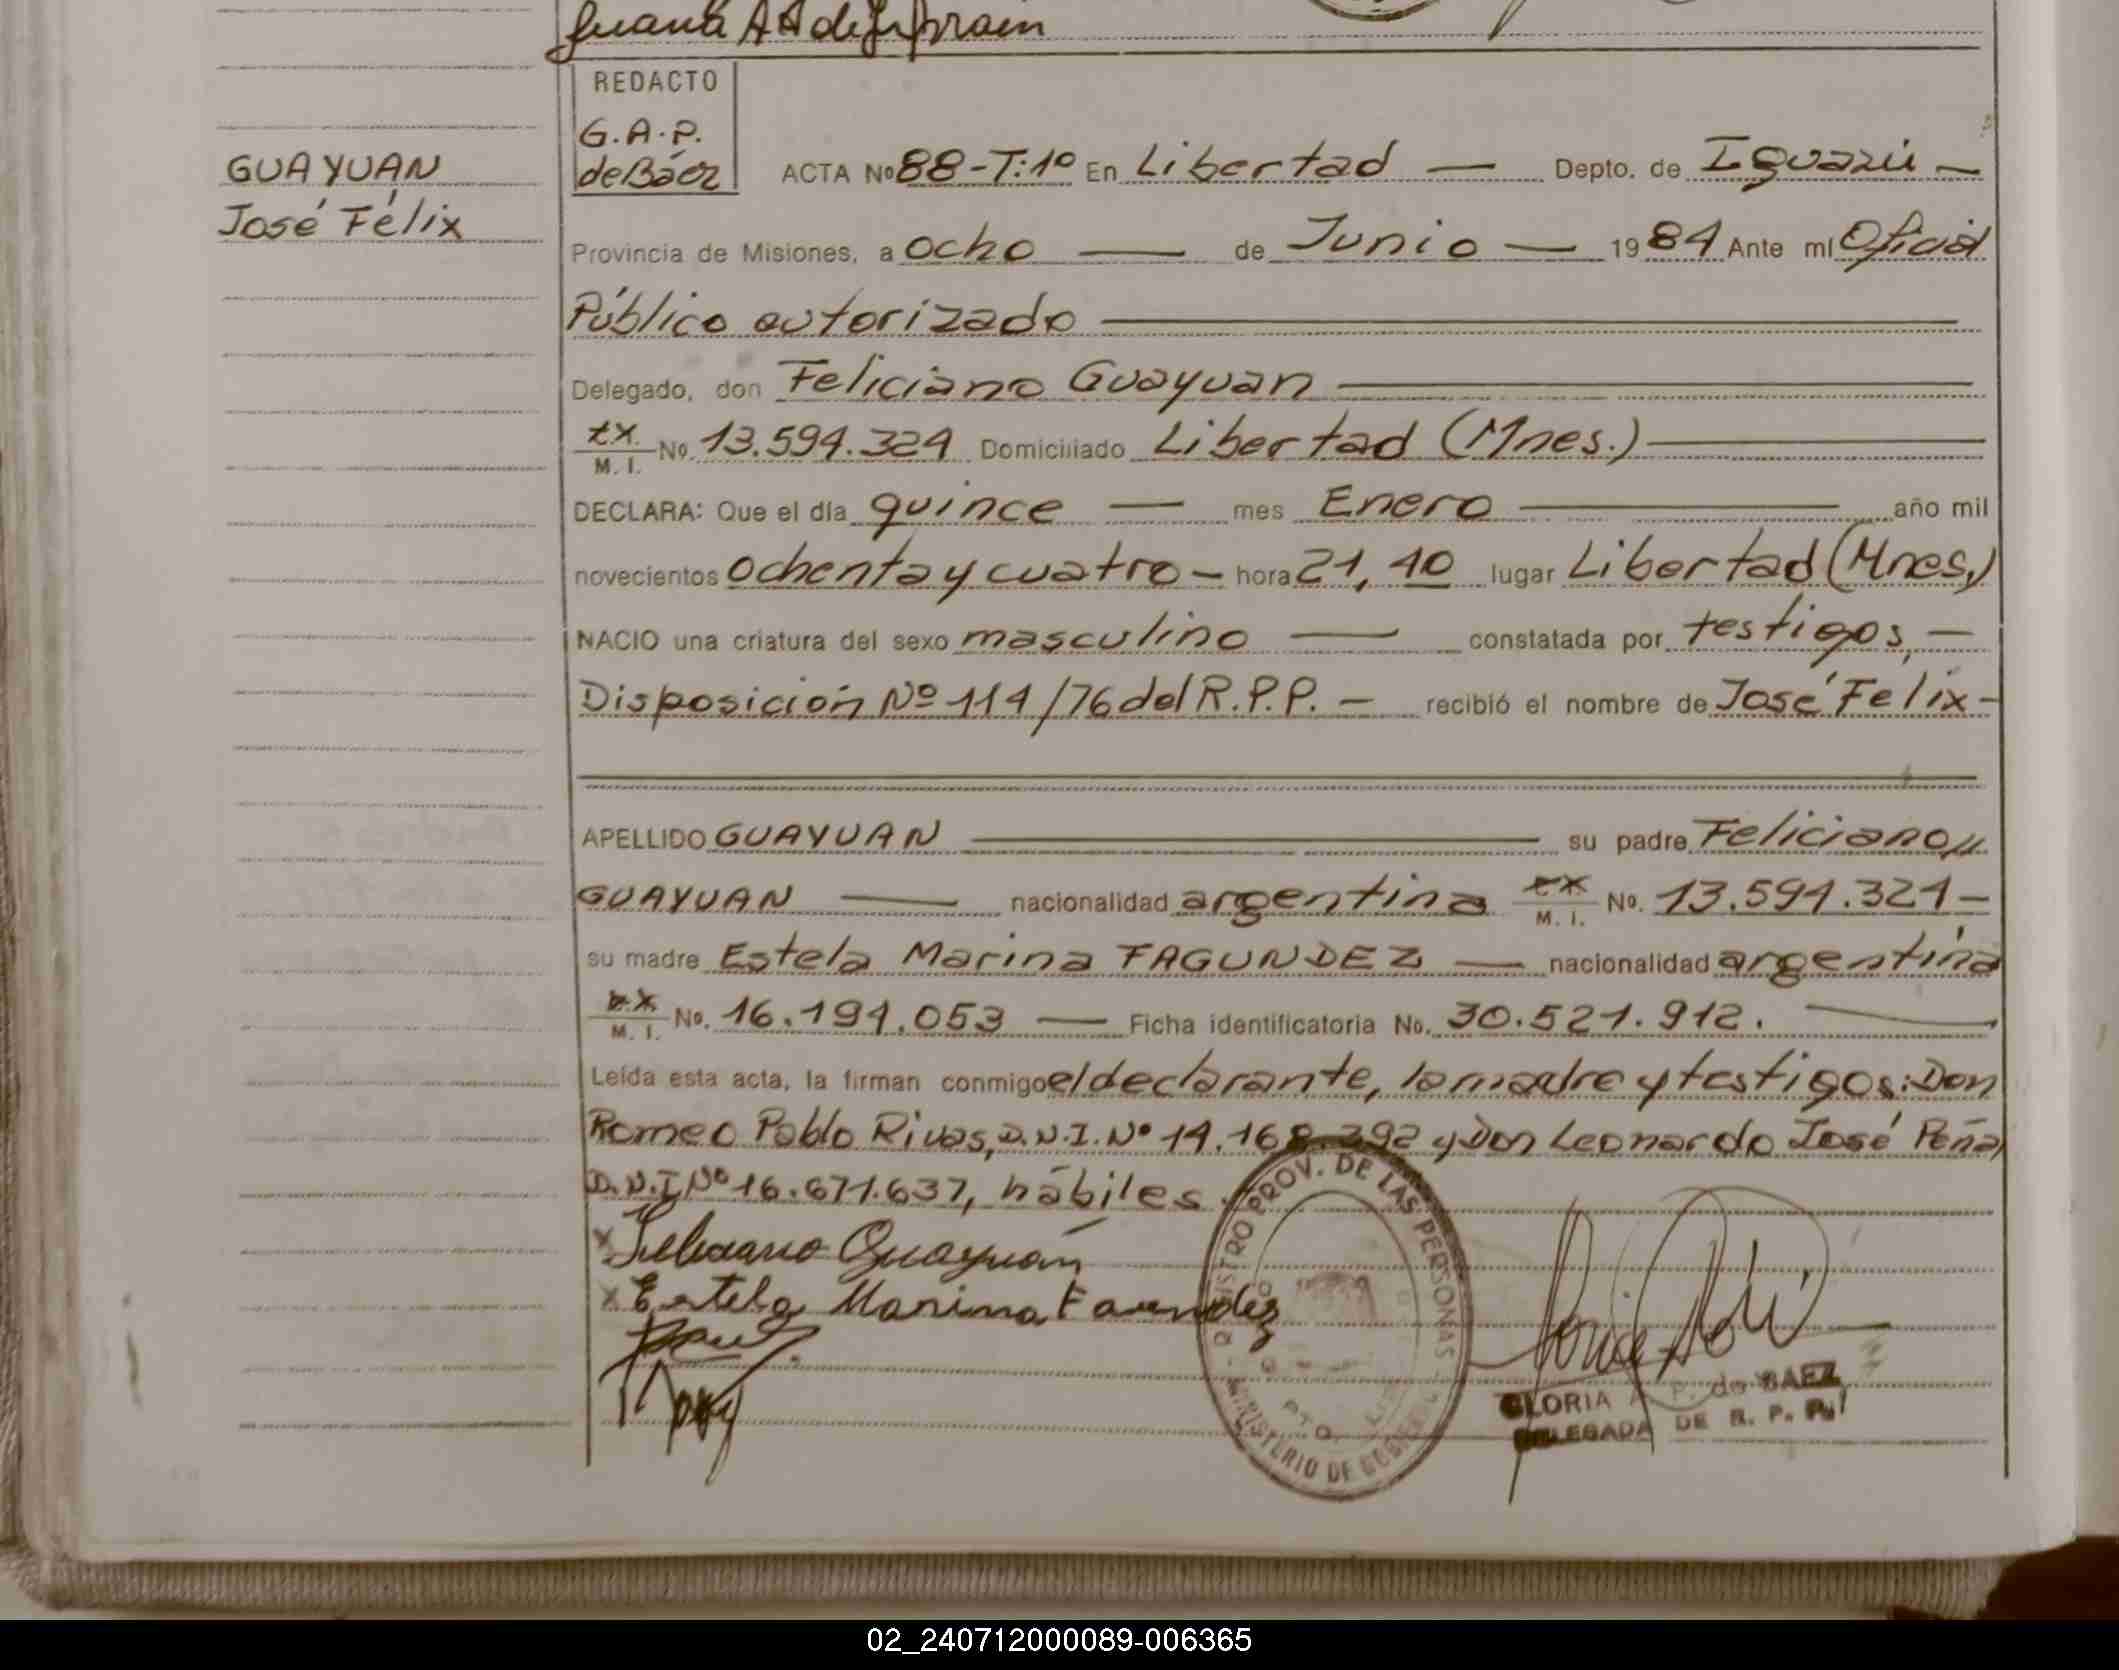 Juana A A de
REDACTO
G.A.P.
de Báez
GUAYUAN
José Félix
ACTA Nº 88-T:1º En Libertad — Depto. de Iguazú —
Provincia de Misiones, a ocho — de Junio — 1984 Ante mí Oficial
Público autorizado
Delegado, don Feliciano Guayuan
M. I. No. 13.594.324 Domiciliado Libertad (Mnes.)
DECLARA: Que el día quince — mes Enero — año mil
novecientos ochenta y cuatro — hora 21,10 lugar Libertad (Mnes.)
NACIO una criatura del sexo masculino — constatada por testigos, —
Disposición Nº 114/76 del R.P.P. — recibió el nombre de José Felix —
APELLIDO GUAYUAN — su padre Feliciano
GUAYUAN — nacionalidad argentina M. I. No. 13.594.324 —
su madre Estela Marina FAGUNDEZ — nacionalidad argentina
M. I. No. 16.194.053 — Ficha identificatoria No. 30.521.912. —
Leída esta acta, la firman conmigo el declarante, la madre y testigos: Don
Romeo Pablo Rivas, D.N.I. Nº 14.168.392 y Don Leonardo José Peña
D.N.I Nº 16.671.637, hábiles.
Feliciano Guayuán
Estela Marina
REGISTRO PROV. DE LAS PERSONAS
MINISTERIO DE GOBIERNO
GLORIA A. P. de BAEZ
DELEGADA DE R. P. P.
02_240712000089-006365